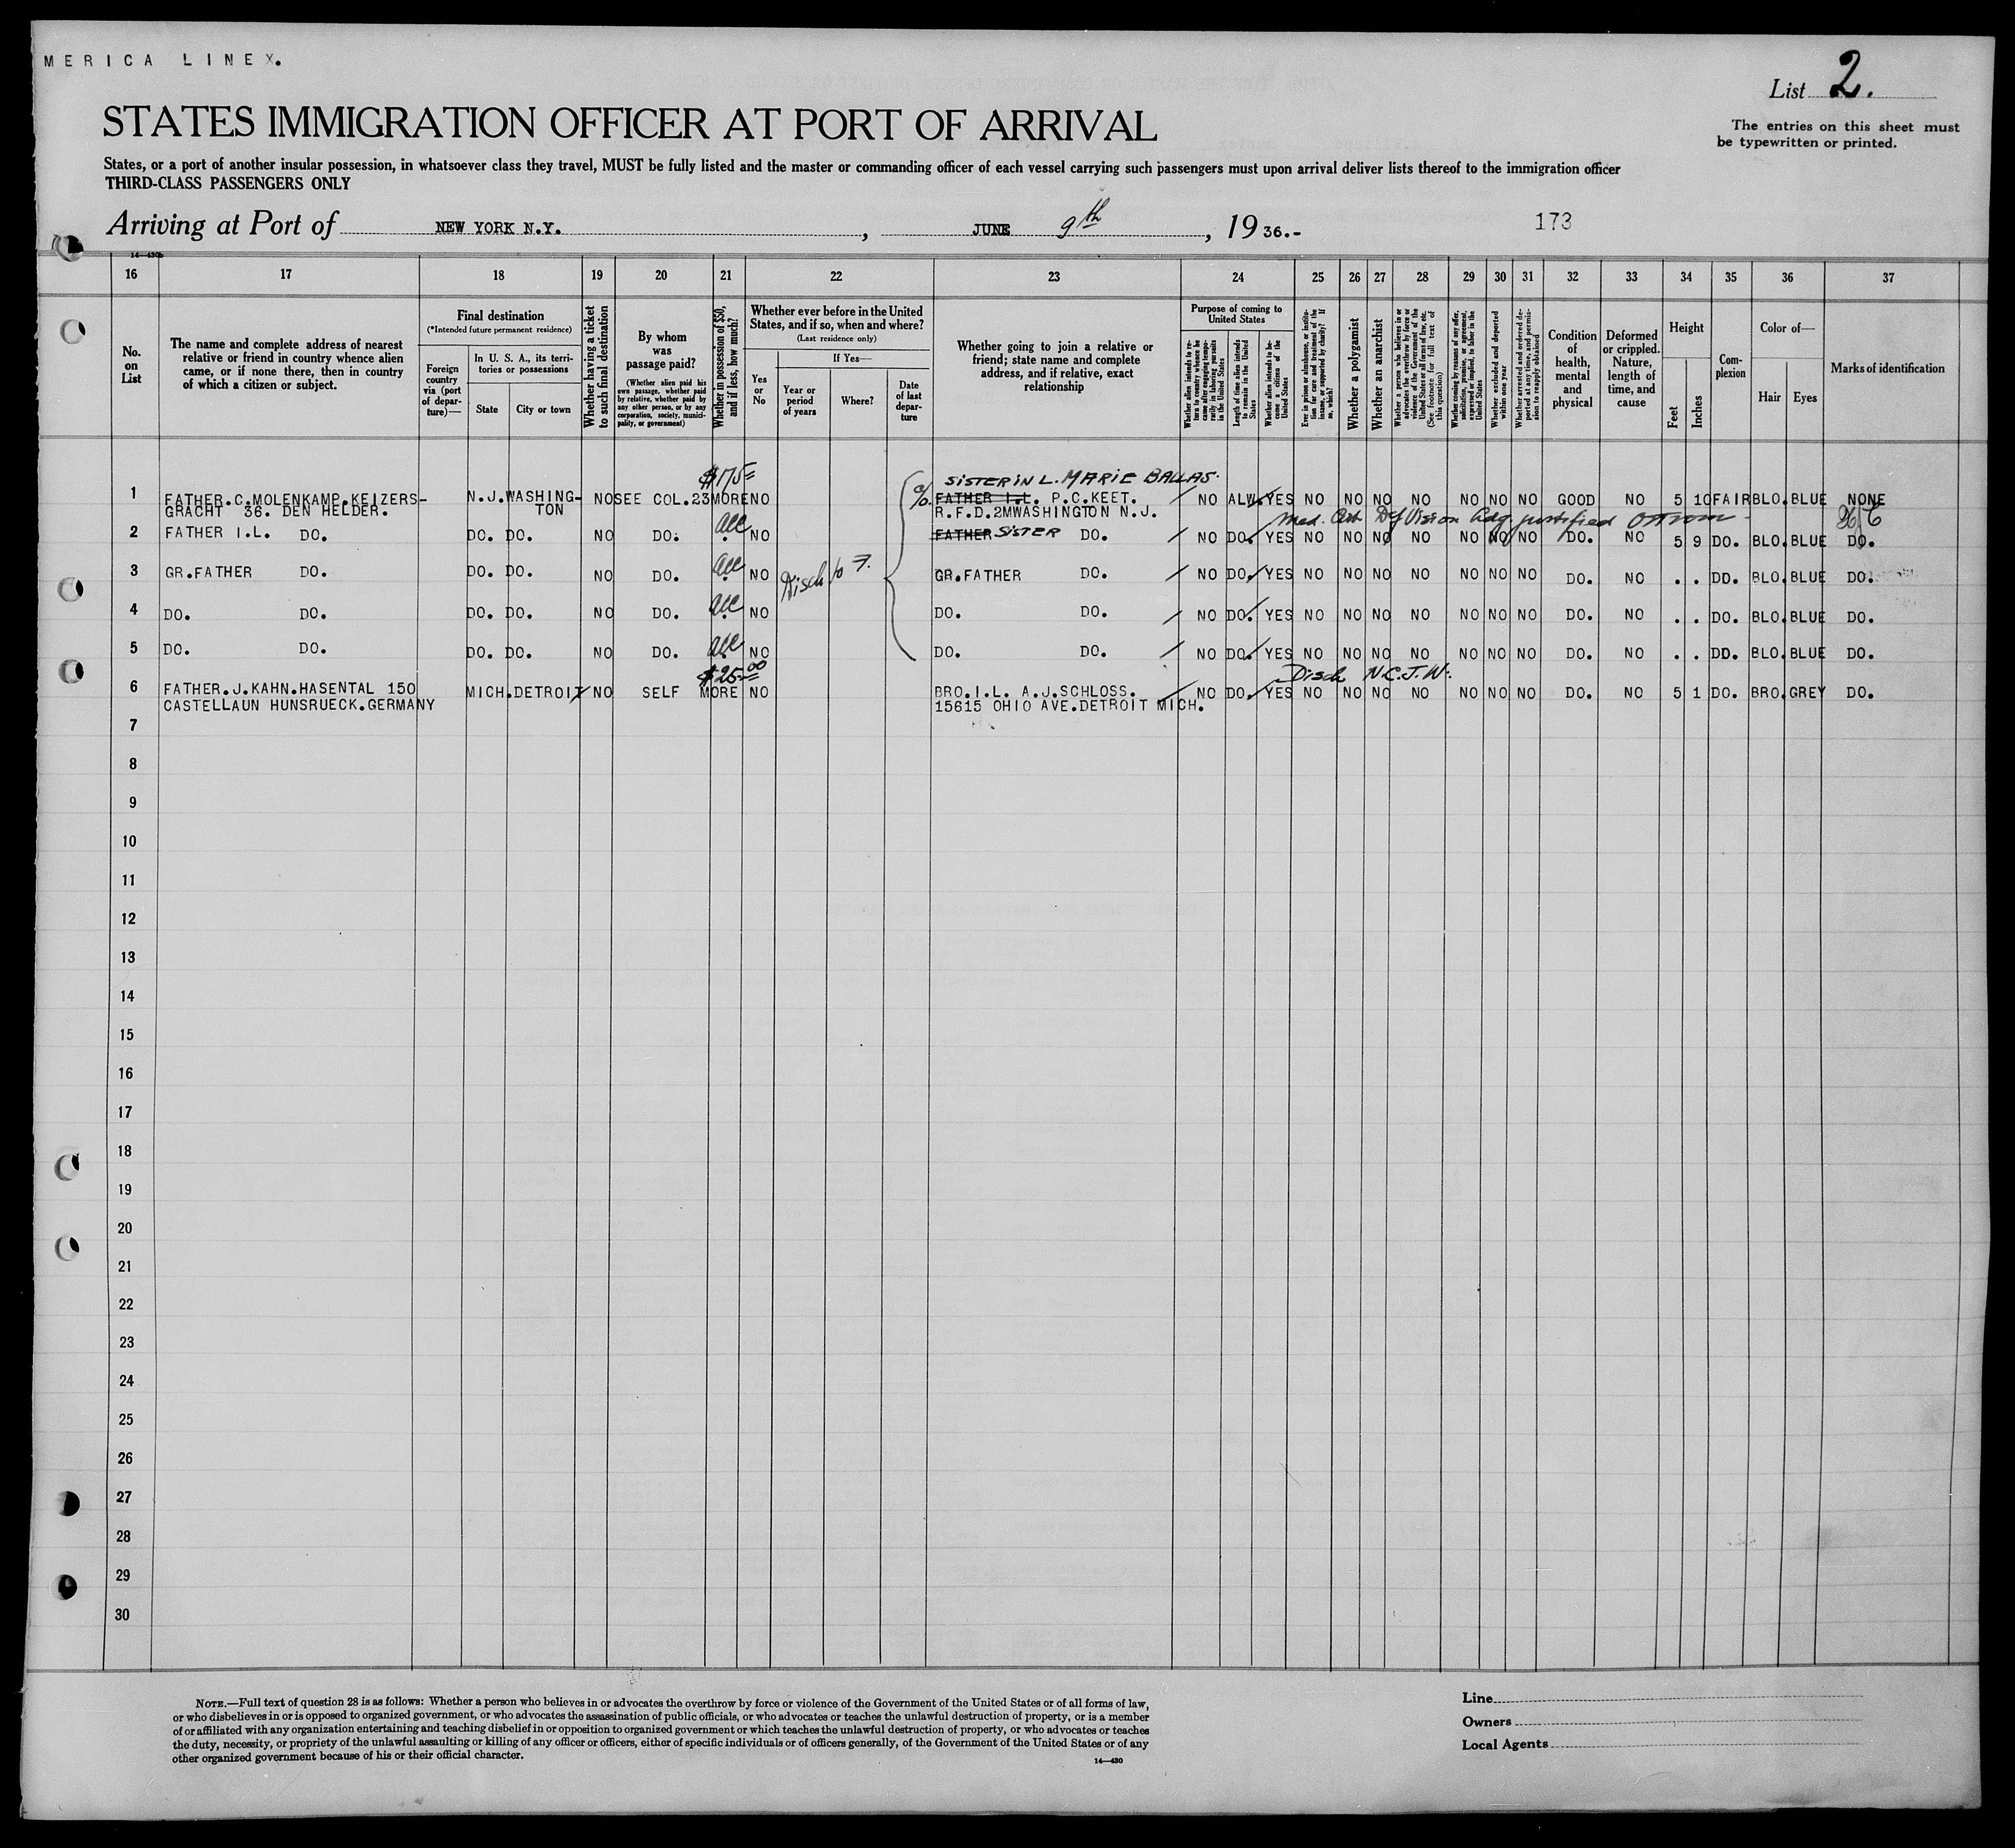 MERICA LINE X.
List 2.
STATES IMMIGRATION OFFICER AT PORT OF ARRIVAL
The entries on this sheet must
be typewritten or printed.
States, or a port of another insular possession, in whatsoever class they travel, MUST be fully listed and the master or commanding officer of each vessel carrying such passengers must upon arrival deliver lists thereof to the immigration officer
THIRD-CLASS PASSENGERS ONLY
Arriving at Port of NEW YORK N.Y. , JUNE 9th , 19 36.- 173
14—430b
16 17 18 19 20 21 22 23 24 25 26 27 28 29 30 31 32 33 34 35 36 37
No.
on
List
The name and complete address of nearest
relative or friend in country whence alien
came, or if none there, then in country
of which a citizen or subject.
Final destination
(*Intended future permanent residence)
Foreign
country
via (port
of depar-
ture)—
In U. S. A., its terri-
tories or possessions
State City or town
Whether having a ticket
to such final destination
By whom
was
passage paid?
(Whether alien paid his
own passage, whether paid
by relative, whether paid by
any other person, or by any
corporation, society, munici-
pality, or government)
Whether in possession of $50,
and if less, how much?
Whether ever before in the United
States, and if so, when and where?
(Last residence only)
Yes
or
No
If Yes—
Year or
period
of years
Where?
Date
of last
depar-
ture
Whether going to join a relative or
friend; state name and complete
address, and if relative, exact
relationship
Purpose of coming to
United States
Whether alien intends to re-
turn to country whence he
came after engaging tempo-
rarily in laboring pursuits
in the United States
Length of time alien intends
to remain in the United
States
Whether alien intends to be-
come a citizen of the
United States
Ever in prison or almshouse, or institu-
tion for care and treatment of the
insane, or supported by charity? If
so, which?
Whether a polygamist
Whether an anarchist
Whether a person who believes in or
advocates the overthrow by force or
violence of the Government of the
United States or all forms of law, etc.
(See footnote for full text of
this question)
Whether coming by reasons of any offer,
solicitation, promise, or agreement,
expressed or implied, to labor in the
United States
Whether excluded and deported
within one year
Whether arrested and ordered de-
ported at any time, and permis-
sion to reapply obtained
Condition
of
health,
mental
and
physical
Deformed
or crippled.
Nature,
length of
time, and
cause
Height
Feet Inches
Com-
plexion
Color of—
Hair Eyes
Marks of identification
$175= SISTER IN L. MARIE BALLAS.
1 FATHER.C.MOLENKAMP.KEIZERS- N.J. WASHING- NO SEE COL.23 MORE NO c/o. FATHER I.L. P.C.KEET. NO ALW. YES NO NO NO NO NO NO NO GOOD NO 5 10 FAIR BLO. BLUE NONE
GRACHT 36. DEN HELDER. TON R.F.D.2M WASHINGTON N.J.
Med. Cert. Def Vision Adj justified
2 FATHER I.L. DO. DO. DO. NO DO. acc NO FATHER SISTER DO. NO DO. YES NO NO NO NO NO NO NO DO. NO 5 9 DO. BLO. BLUE DO.
3 GR.FATHER DO. DO. DO. NO DO. acc NO Disch to 7. GR.FATHER DO. NO DO. YES NO NO NO NO NO NO NO DO. NO . . DO. BLO. BLUE DO.
4 DO. DO. DO. DO. NO DO. acc NO DO. DO. NO DO. YES NO NO NO NO NO NO NO DO. NO . . DO. BLO. BLUE DO.
5 DO. DO. DO. DO. NO DO. acc NO DO. DO. NO DO. YES NO NO NO NO NO NO NO DO. NO . . DO. BLO. BLUE DO.
$25.00 Disch N.C.J.W.
6 FATHER.J.KAHN.HASENTAL 150 MICH. DETROIT NO SELF MORE NO BRO.I.L. A.J.SCHLOSS. NO DO. YES NO NO NO NO NO NO NO DO. NO 5 1 DO. BRO. GREY DO.
CASTELLAUN HUNSRUECK.GERMANY 15615 OHIO AVE.DETROIT MICH.
7
8
9
10
11
12
13
14
15
16
17
18
19
20
21
22
23
24
25
26
27
28
29
30
NOTE.—Full text of question 28 is as follows: Whether a person who believes in or advocates the overthrow by force or violence of the Government of the United States or of all forms of law,
or who disbelieves in or is opposed to organized government, or who advocates the assassination of public officials, or who advocates or teaches the unlawful destruction of property, or is a member
of or affiliated with any organization entertaining and teaching disbelief in or opposition to organized government or which teaches the unlawful destruction of property, or who advocates or teaches
the duty, necessity, or propriety of the unlawful assaulting or killing of any officer or officers, either of specific individuals or of officers generally, of the Government of the United States or of any
other organized government because of his or their official character.
14—430
Line
Owners
Local Agents